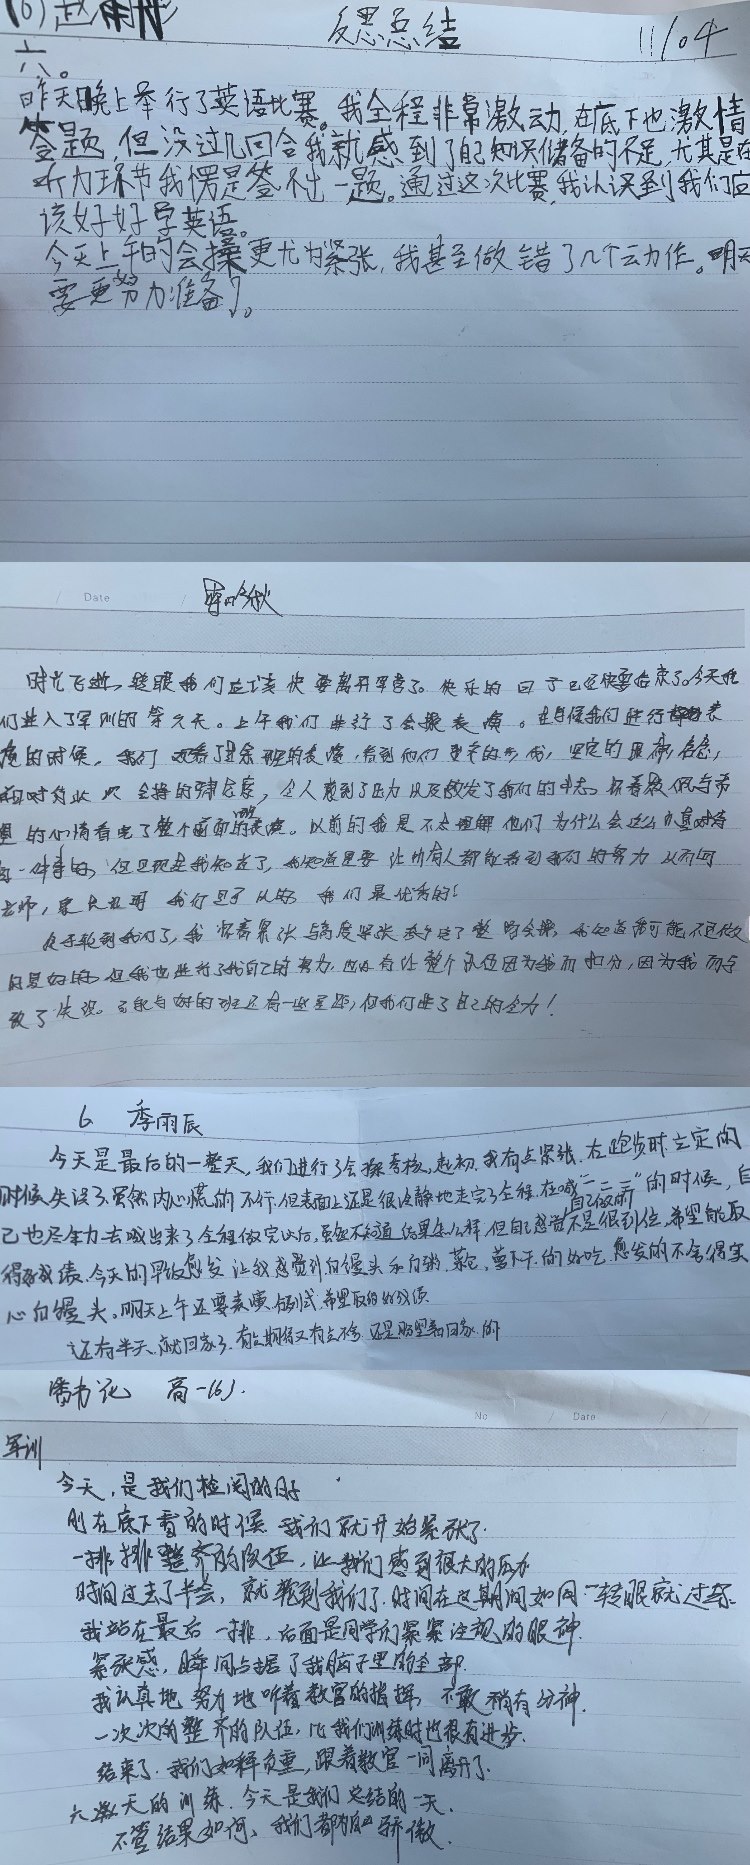 (6) 反思总结 11/04
六。
昨天晚上举行了英语比赛。我全程非常激动,在底下也激情
答题,但没过几回合我就感到了自己知识储备的不足,尤其是在
听力环节我愣是答不出一题。通过这次比赛,我认识到我们应
该好好学英语。
今天上午的会操更尤为紧张,我甚至做错了几个动作。明天
要更努力准备了。
Date
时光飞逝,转眼我们应该快要离开军营了。快乐的日子已经快要结束了。今天我
们进入了军训的第六天。上午我们进行了会操表演。在等候我们进行表
演的时候,我们观看了其余班的表演,看到他们
令人感到了压力以及激发了我们的斗志。怀着敬佩与希
的心情看完了整个前面的表演。以前的我是不太理解他们为什么会这么认真对待
每一件事的,但现在我知道了,我知道是要让所有人都能看到我们的努力从而向
老师,家长证明我们是最优秀的!
终于轮到我们了,我怀着紧张与高度紧张走完了整场会操,我知道我可能不是做
的最好的,但我也进行了我自己的努力,没有让整个队伍因为我而扣分,因为我而导
致了失误。可能与好的班还有一些差距,但我们尽了自己的全力!
6 季雨辰
今天是最后的一整天,我们进行了会操考核,起初,我有点紧张,在跑步时立定的
时候失误了,虽然内心慌的不行,但表面上还是很冷静地走完了全程,在喊“一二三”的时候,自
己也尽全力去喊出来了,全程做完以后,虽然不知道结果怎么样,但自己感觉自己做的不是很到位,希望能取
得好成绩。今天的早饭愈发让我感觉到白馒头和白粥,菜包,萝卜干的好吃,愈发的不舍得实
心白馒头。明天上午还要表演,希望取得好成绩
还有半天,就回家了,有点期待又有点不舍,还是盼望着回家的
高一(6).
No Date
军训
今天,是我们检阅的日子
刚在底下看的时候我们就开始紧张了.
一排排整齐的队伍,让我们感到很大的压力
时间过去了半会,就轮到我们了.时间在这期间如同一转眼就过去.
我站在最后一排,后面是同学们紧紧注视的眼神.
紧张感,瞬间占据了我脑子里的全部.
我认真地努力地听着教官的指挥,不敢稍有分神.
一次次的整齐的队伍,比我们训练时也很有进步.
结束了.我们如释负重,跟着教官一同离开了.
六天的训练.今天是我们总结的一天.
不管结果如何、我们都为此骄傲.